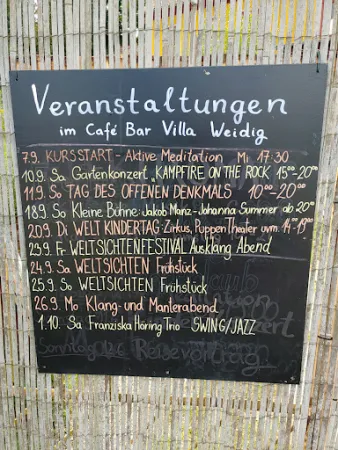 Veranstaltungen
im Café Bar Villa Weidig
7.9. KURSSTART - Aktive Meditation Mi 17:30
10.9. Sa Gartenkonzert "KAMPFIRE ON THE ROCK" 15⁰⁰-20⁰⁰
11.9. So TAG DES OFFENEN DENKMALS 10⁰⁰-20⁰⁰
18.9. So Kleine Bühne: Jakob Manz - Johanna Summer ab 20⁰⁰
20.9. Di WELT KINDERTAG-Zirkus, PuppenTheater uvm. 14⁰⁰-19⁰⁰
23.9. Fr WELTSICHTENFESTIVAL Ausklang Abend
24.9. Sa WELTSICHTEN Frühstück
25.9. So WELTSICHTEN Frühstück
26.9. Mo Klang- und Manterabend
1.10. Sa Franziska Höring Trio SWING/JAZZ
Sonntag Reisevortrag